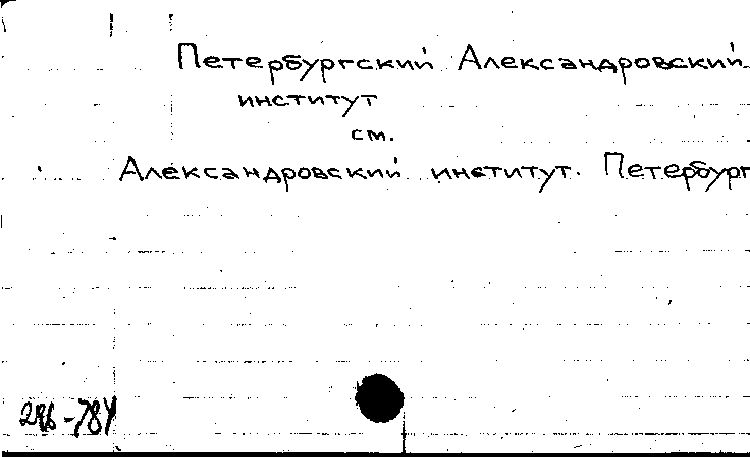 Петербургский Александровский
институт
см.
Александровский институт. Петербург